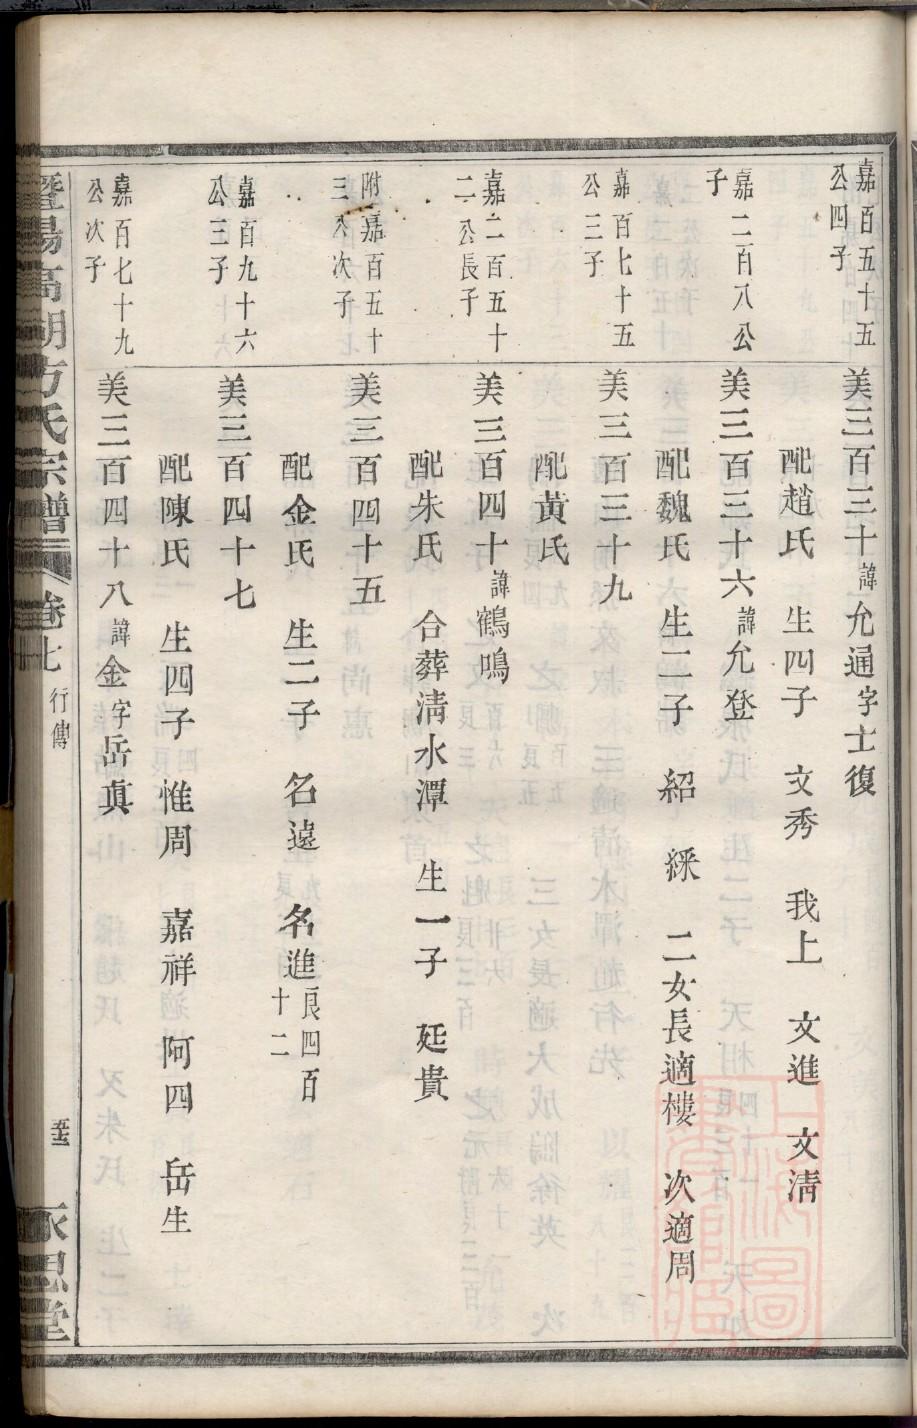 嘉百五十五
公四子
美三百三十諱允通字士復
配趙氏　生四子　文秀　我上　文進　文淸
嘉二百八公
子
美三百三十六諱允登
配魏氏　生二子　紹　綵　二女長適樓　次適周
嘉百七十五
公三子
美三百三十九
配黃氏
嘉二百五十
二公長子
美三百四十諱鶴鳴
配朱氏　合葬淸水潭　生一子　廷貴
附嘉百五十
三公次子
美三百四十五
配金氏　生二子　名遠　名進良四百
十二
嘉百九十六
公三子
美三百四十七
配陳氏　生四子　惟周　嘉祥　阿四　岳生
嘉百七十九
公次子
美三百四十八諱金字岳眞
暨陽高湖方氏宗譜　卷七　行傳　永思堂